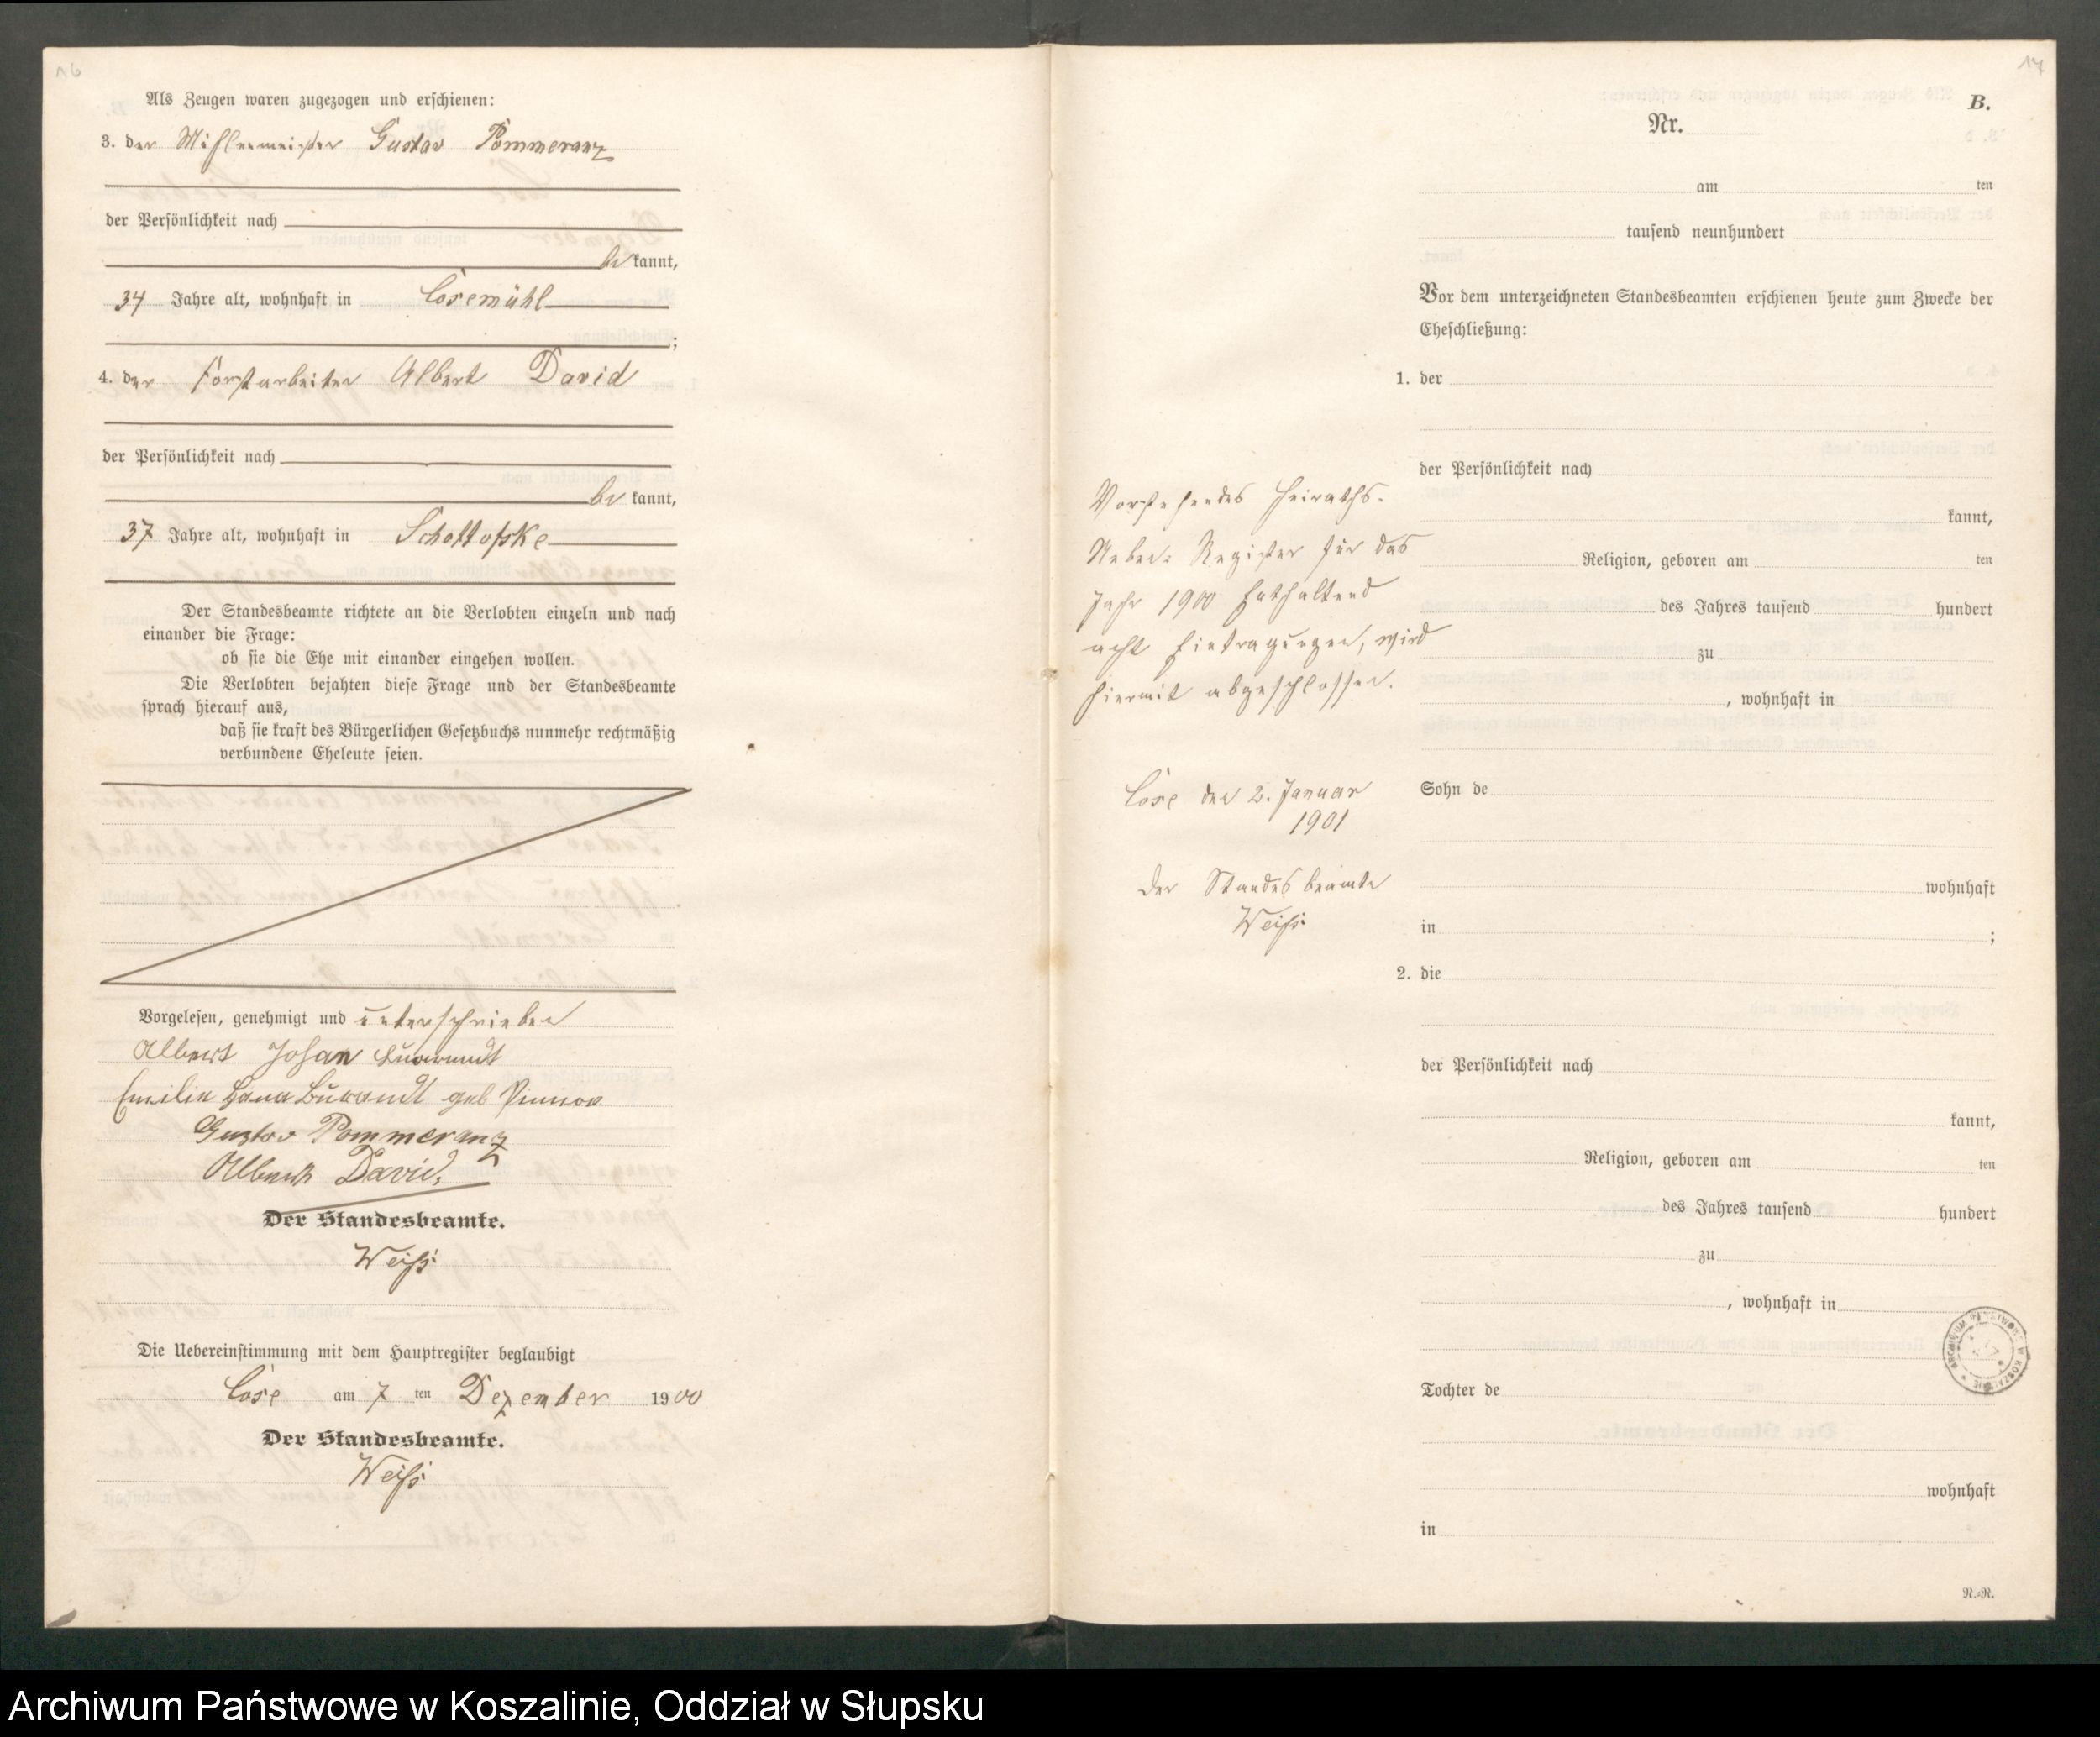 16
Als Zeugen waren zugezogen und erschienen:
3. der Mühlenmeister Gustav Pommeranz
der Persönlichkeit nach
be kannt,
34 Jahre alt, wohnhaft in Cosemühl
;
4. der Forstarbeiter Albert David
der Persönlichkeit nach
be kannt,
37 Jahre alt, wohnhaft in Schottofske
Der Standesbeamte richtete an die Verlobten einzeln und nach
einander die Frage:
ob sie die Ehe mit einander eingehen wollen.
Die Verlobten bejahten diese Frage und der Standesbeamte
sprach hierauf aus,
daß sie kraft des Bürgerlichen Gesetzbuchs nunmehr rechtmäßig
verbundene Eheleute seien.
Vorgelesen, genehmigt und unterschrieben
Albert Johan
Emilie geb Pinnow
Gustav Pommeranz
Albert David.
Der Standesbeamte.
Weiß
Die Uebereinstimmung mit dem Hauptregister beglaubigt
Cose am 7 ten Dezember 1900
Der Standesbeamte.
Weiß
17
B.
Nr.
am ten
tausend neunhundert
Vor dem unterzeichneten Standesbeamten erschienen heute zum Zwecke der
Eheschließung:
1. der
der Persönlichkeit nach
kannt,
Religion, geboren am ten
des Jahres tausend hundert
zu
, wohnhaft in
Sohn de
wohnhaft
in ;
2. die
der Persönlichkeit nach
kannt,
Religion, geboren am ten
des Jahres tausend hundert
zu
, wohnhaft in
Tochter de
wohnhaft
in
R.=R.
Vorstehendes Heiraths-
Neben-Register für das
Jahr 1900 Enthaltend
acht Eintragungen, wird
hiermit abgeschlossen.
Cose den 2. Januar
1901
Der Standesbeamte
Weiß
ARCHIWUM PAŃSTWOWE W KOSZALINIE
Archiwum Państwowe w Koszalinie, Oddział w Słupsku